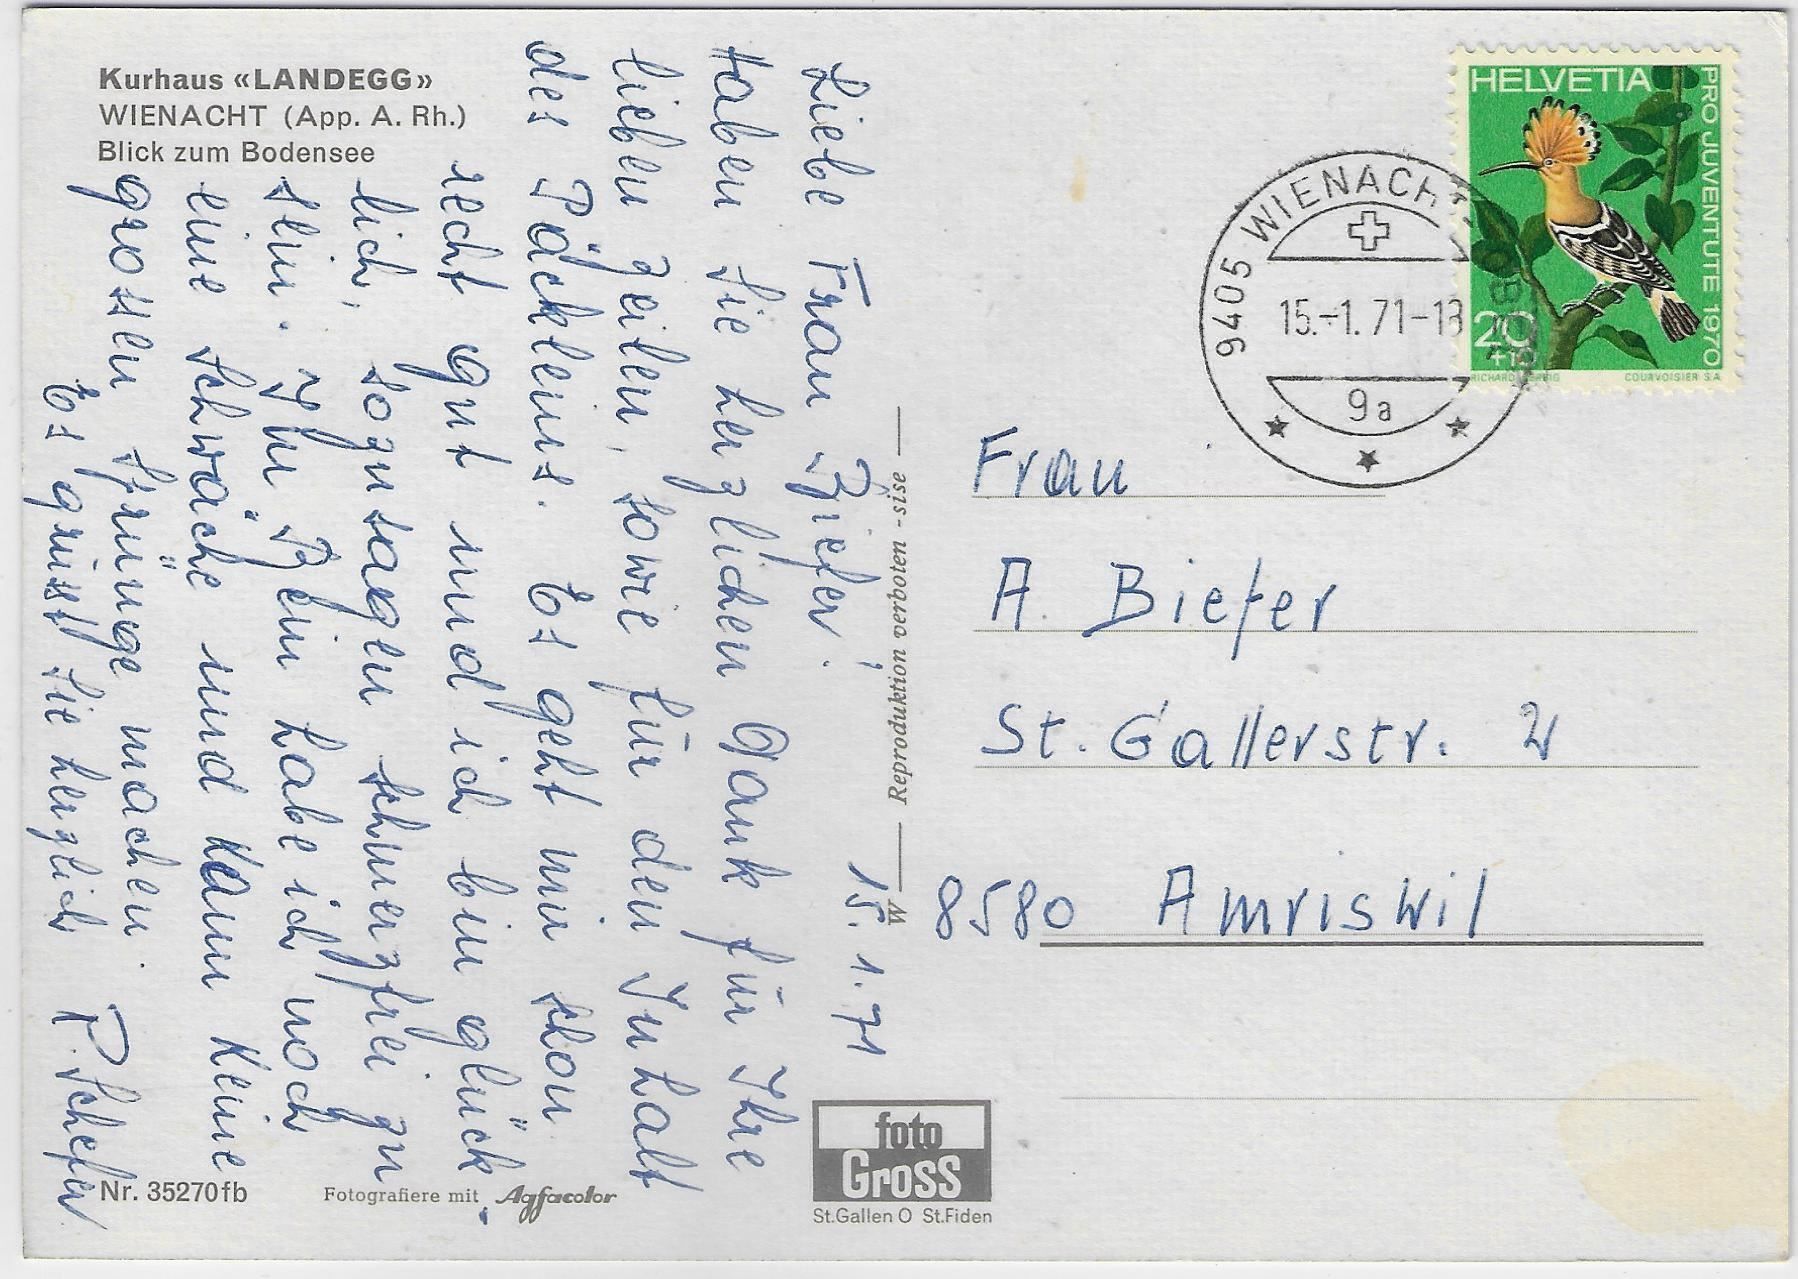 Kurhaus «LANDEGG»
WIENACHT (App. A. Rh.)
Blick zum Bodensee
15. 1. 71
Liebe Frau Biefer!
Haben Sie herzlichen Dank für Ihre
lieben Zeilen, sowie für den Inhalt
des Päckleins. Es geht mir schon
recht gut und ich bin glück-
lich, sozusagen schmerzfrei zu
sein. Im Bein habe ich noch
eine Schwäche und kann keine
grossen Sprünge machen.
Es grüsst Sie herzlich P. Schefer
Nr. 35270fb
Fotografiere mit Agfacolor
W — Reproduktion verboten - sise —
foto
Gross
St.Gallen O St.Fiden
HELVETIA
PRO JUVENTUTE 1970
20
COURVOISIER S.A.
9405 WIENACHT-
15.-1.71-18
9a
Frau
A. Biefer
St. Gallerstr. 21
8580 Amriswil